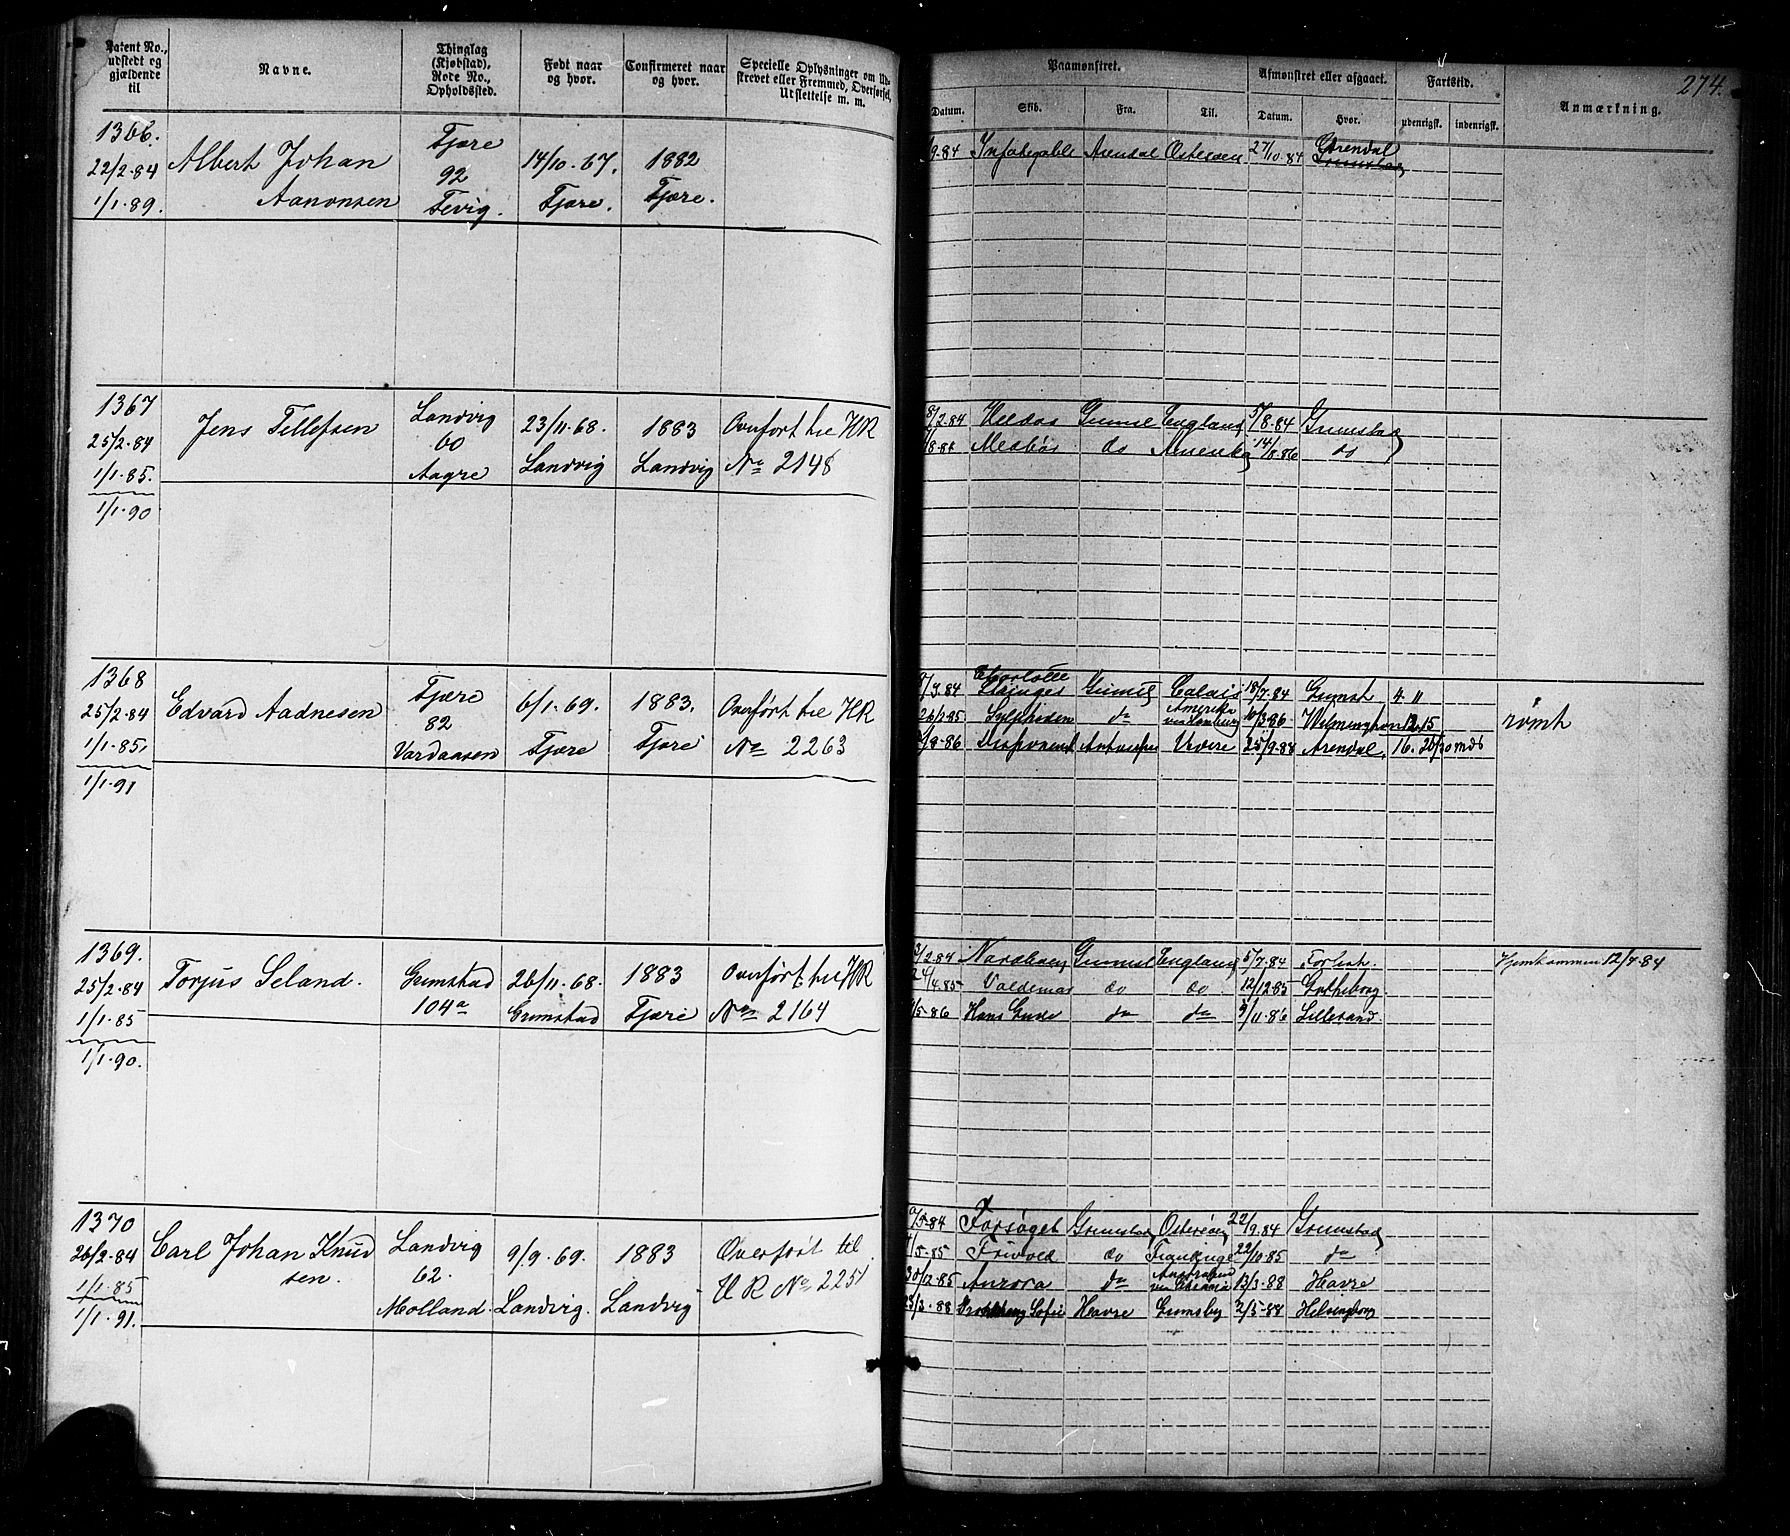 Patent No., udstedt og gjældende til
Navne.
Thinglag (Kjøbstad), Rode No., Opholdssted.
Født naar og hvor.
Confirmeret naar og hvor.
Specielle Oplysninger om Ud-
skrevet eller Fremmed, Overførsel,
Udslettelse m. m.
1366.
22/2-84
1/1.89.
Albert Johan
Aanonsen
Fjære
92
Fevig.
14/10.67.
Fjære.
1882
Fjære.
1367
25/2-84
1/1.85.
1/1.90
Jens Tellefsen
Landvig
60
Aagre
23/11-68.
Landvig
1883
Landvig
Overført til HR
No 2148
1368
25/2-84
1/1.85
1/1.91
Edvard Aadnesen
Fjære
82
Vardaasen
6/1.69.
Fjære
1883.
Fjære
Overført til HR
No 2263
1369.
25/2-84
1/1.85
1/1.90.
Torjus Seland.
Grimstad
104a
26/11-68.
Grimstad
1883
Fjære
Overført til HR
No 2164
1370
26/2-84
1/1.85
1/1.91.
Carl Johan Knud
sen.
Landvig
62.
Molland.
9/9.69.
Landvig.
1883
Landvig
Overført til
HR No 2251
274.
Paamønstret.
Afmønstret eller afgaaet.
Fartstid.
Anmærkning.
Datum. Skib. Fra. Til. Datum. Hvor. udenrigsk. indenrigsk.
9-84 Arendal Østersøen 27/10-84 Arendal
2.84 England 5/8-84 Grimstad
8-84 do 14/11-86 do
Charlotte
9.84 Calais 18/7-84 Grimst 4. 11
Amerika
26/2-85 do 10/3-86 Wilmington 12.15 rømt
8-86 25/9-88 Arendal. 16. 20/30 mds
2.84 Nordberg England 5/7-84 Hjemkommen 12/7-84
24/4.85 Valdemar do do 12/12.85 Gotheborg.
5-86 Hans Gude do do 11-86 Lillesand.
5-84 Forsøget Grimstad Østersøen 22/9.84 Grimstad
5-85 Frivold do 22/10.85 do
30/12-85 Aurora do 13/3-88 Havre
28/3-88 Sofie Havre Grimsby 2/5-88 Helsingborg